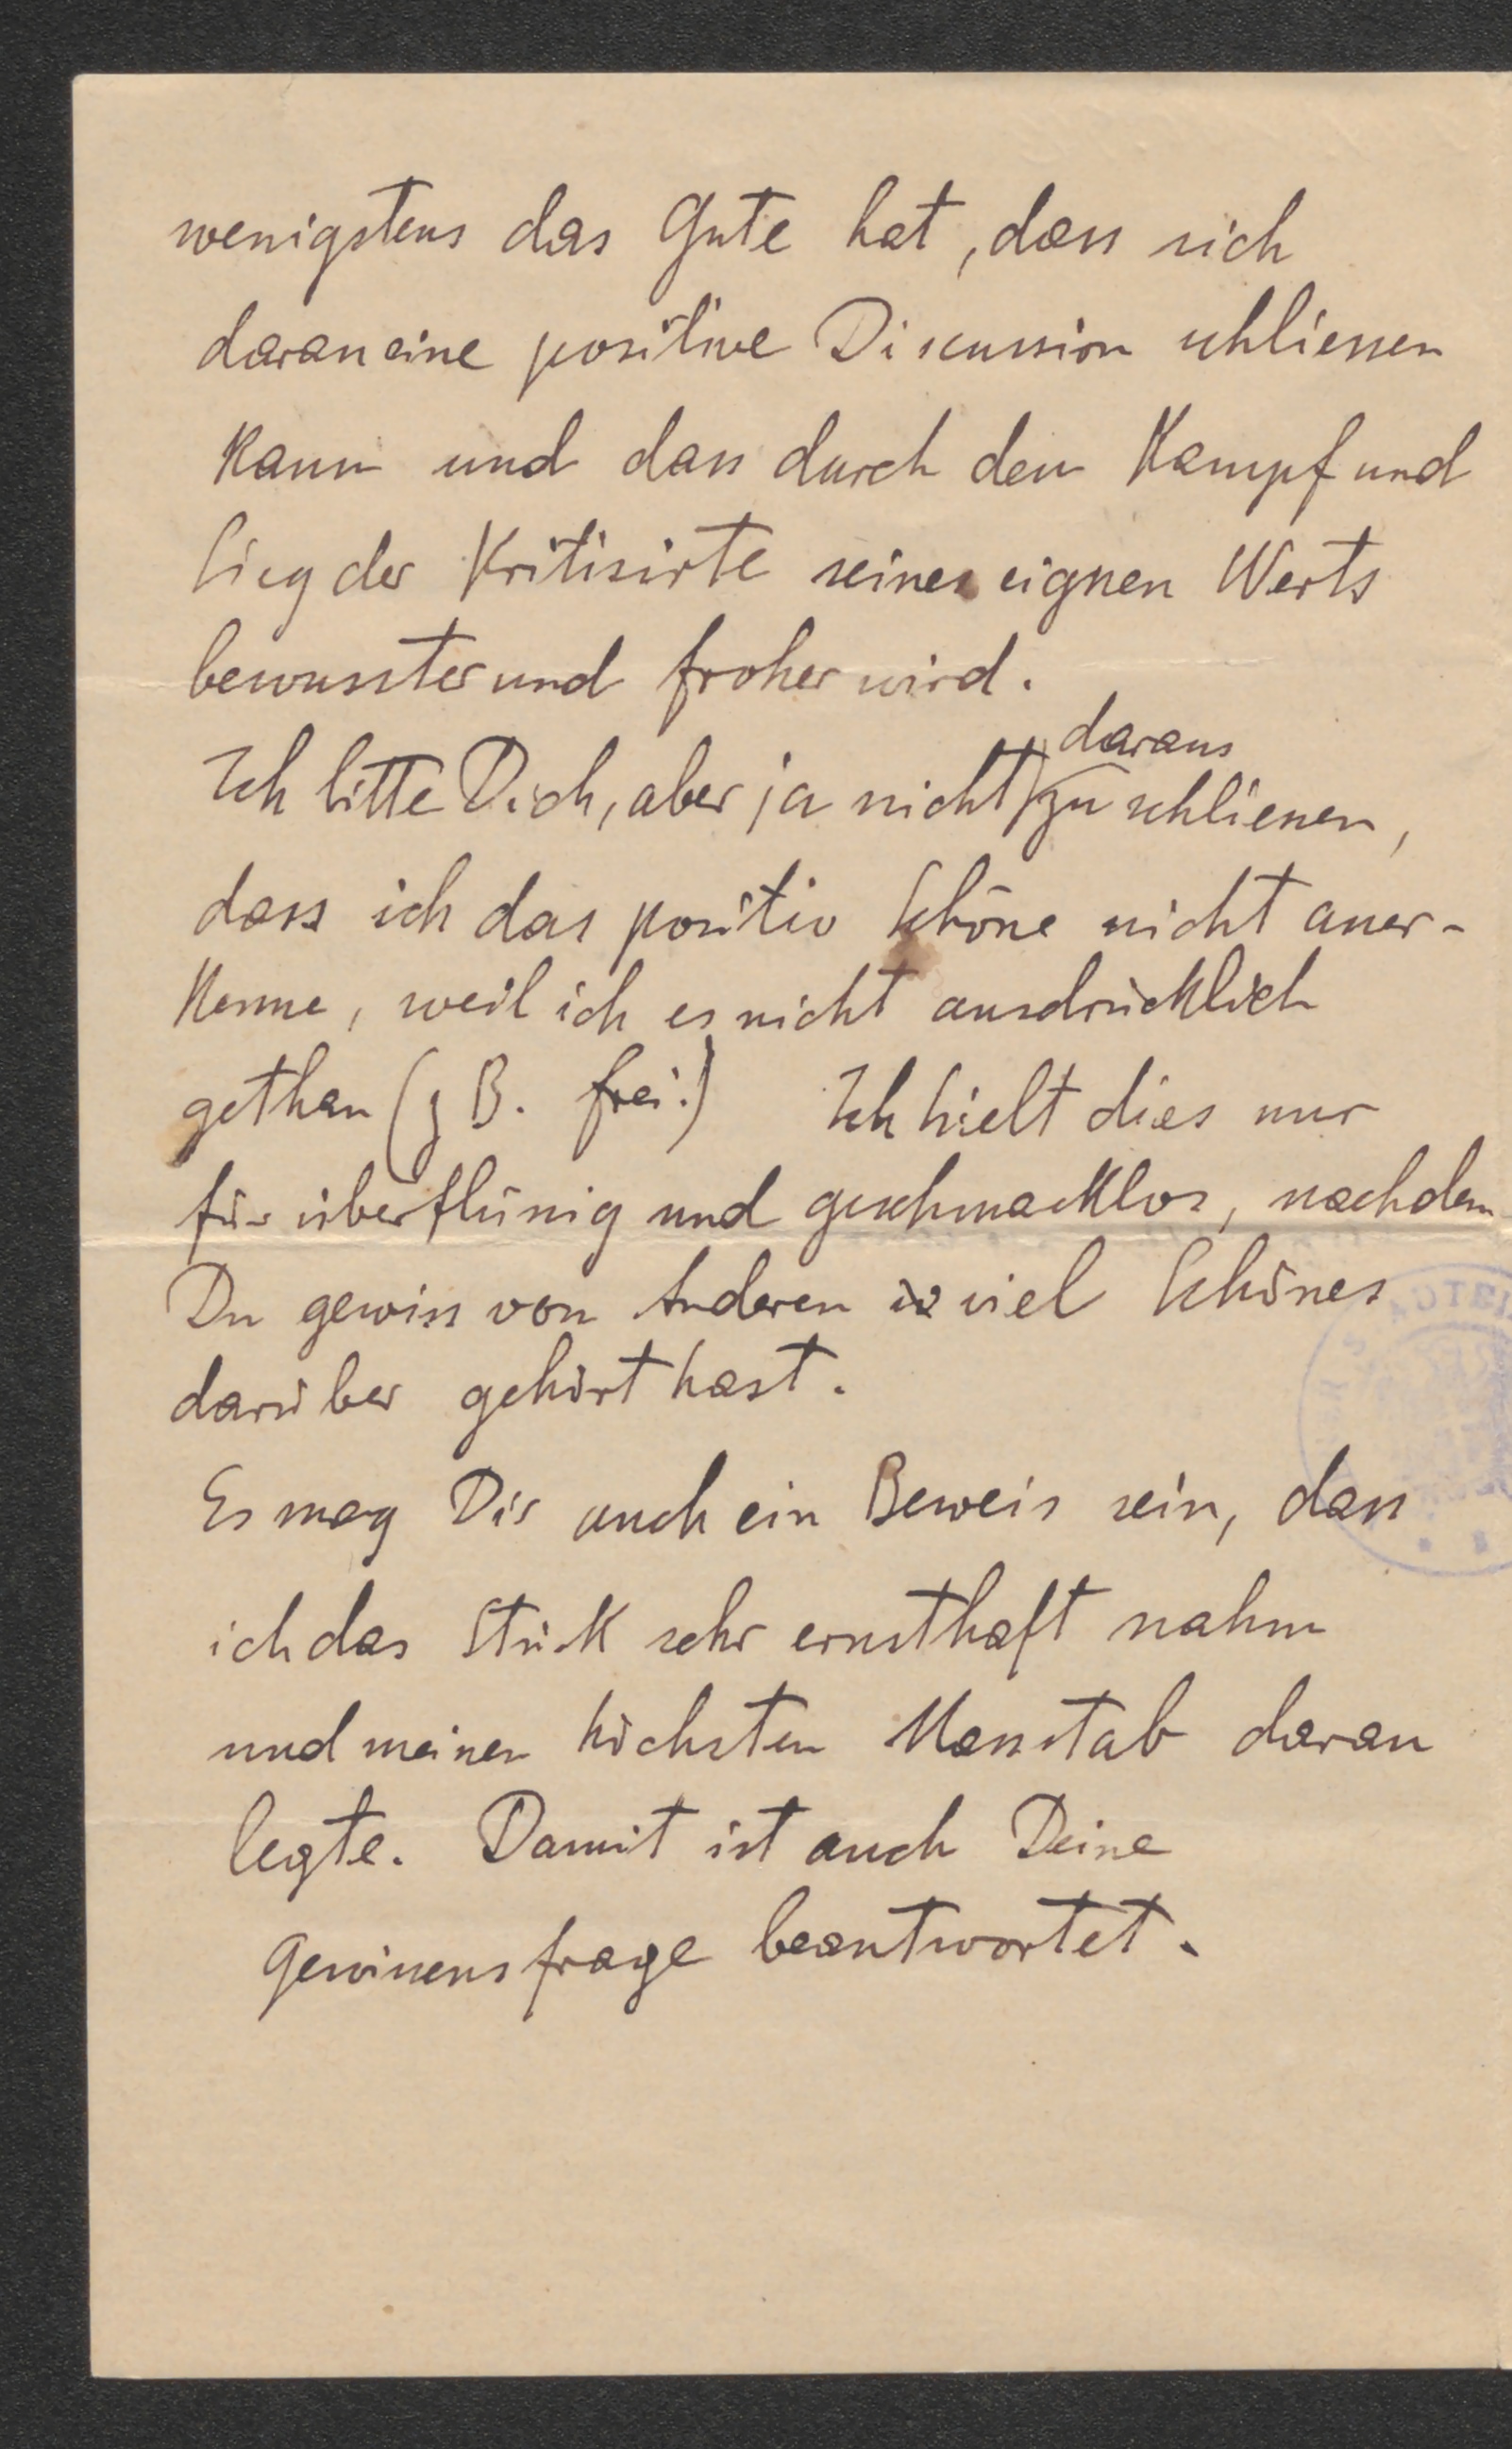 wenigstens das Gute hat, dass sich
daran eine positive Discussion schliessen
kann und dass durch den Kampf und
Sieg der Kritisirte seines eignen Werts
bewusster und froher wird.
daraus
Ich bitte Dich, aber ja nicht zu schliessen,
dass ich das positiv Schöne nicht aner-
kenne, weil ich es nicht ausdrücklich
gethan (z B. frei.) Ich hielt dies nur
für überflüssig und geschmacklos, nachdem
Du gewiss von Anderen viel Schönes
darüber gehört hast.
Es mag Dir auch ein Beweis sein, dass
ich das Stück sehr ernsthaft nahm
und meinen höchsten Massstab daran
legte. Damit ist auch Deine
Gewissensfrage beantwortet.